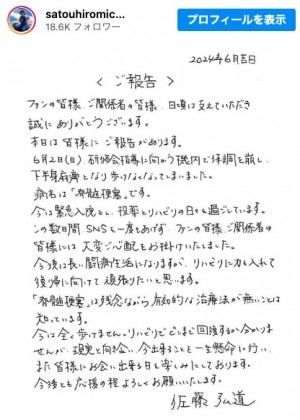 satouhiromic...
18.6K フォロワー
プロフィールを表示
2024年6月吉日
〈 ご報告 〉
ファンの皆様、ご関係者の皆様、日頃は支えていただき
誠にありがとうございます。
本日は皆様にご報告があります。
6月2日(日)、研修会指導に向かう機内で体調を崩し、
下半身麻痺となり歩けなくなってしまいました。
病名は「脊髄梗塞」です。
今は緊急入院をし、投薬とリハビリの日々を過ごしています。
この数日間、SNSも一度もあげず、ファンの皆様、ご関係者の
皆様には大変ご心配をお掛けいたしました。
今後は長い闘病生活になりますが、リハビリに力を入れて
復帰に向けて頑張りたいと思います。
「脊髄梗塞」は残念ながら有効的な治療法が無いことは
知っています。
今は全く歩けません。リハビリでどこまで回復するか分かりま
せんが、現実と向き合い、今出来ることを一生懸命に行い、
また皆様にお会い出来る日を楽しみにしております。
今後とも応援の程よろしくお願いいたします。
佐藤弘道